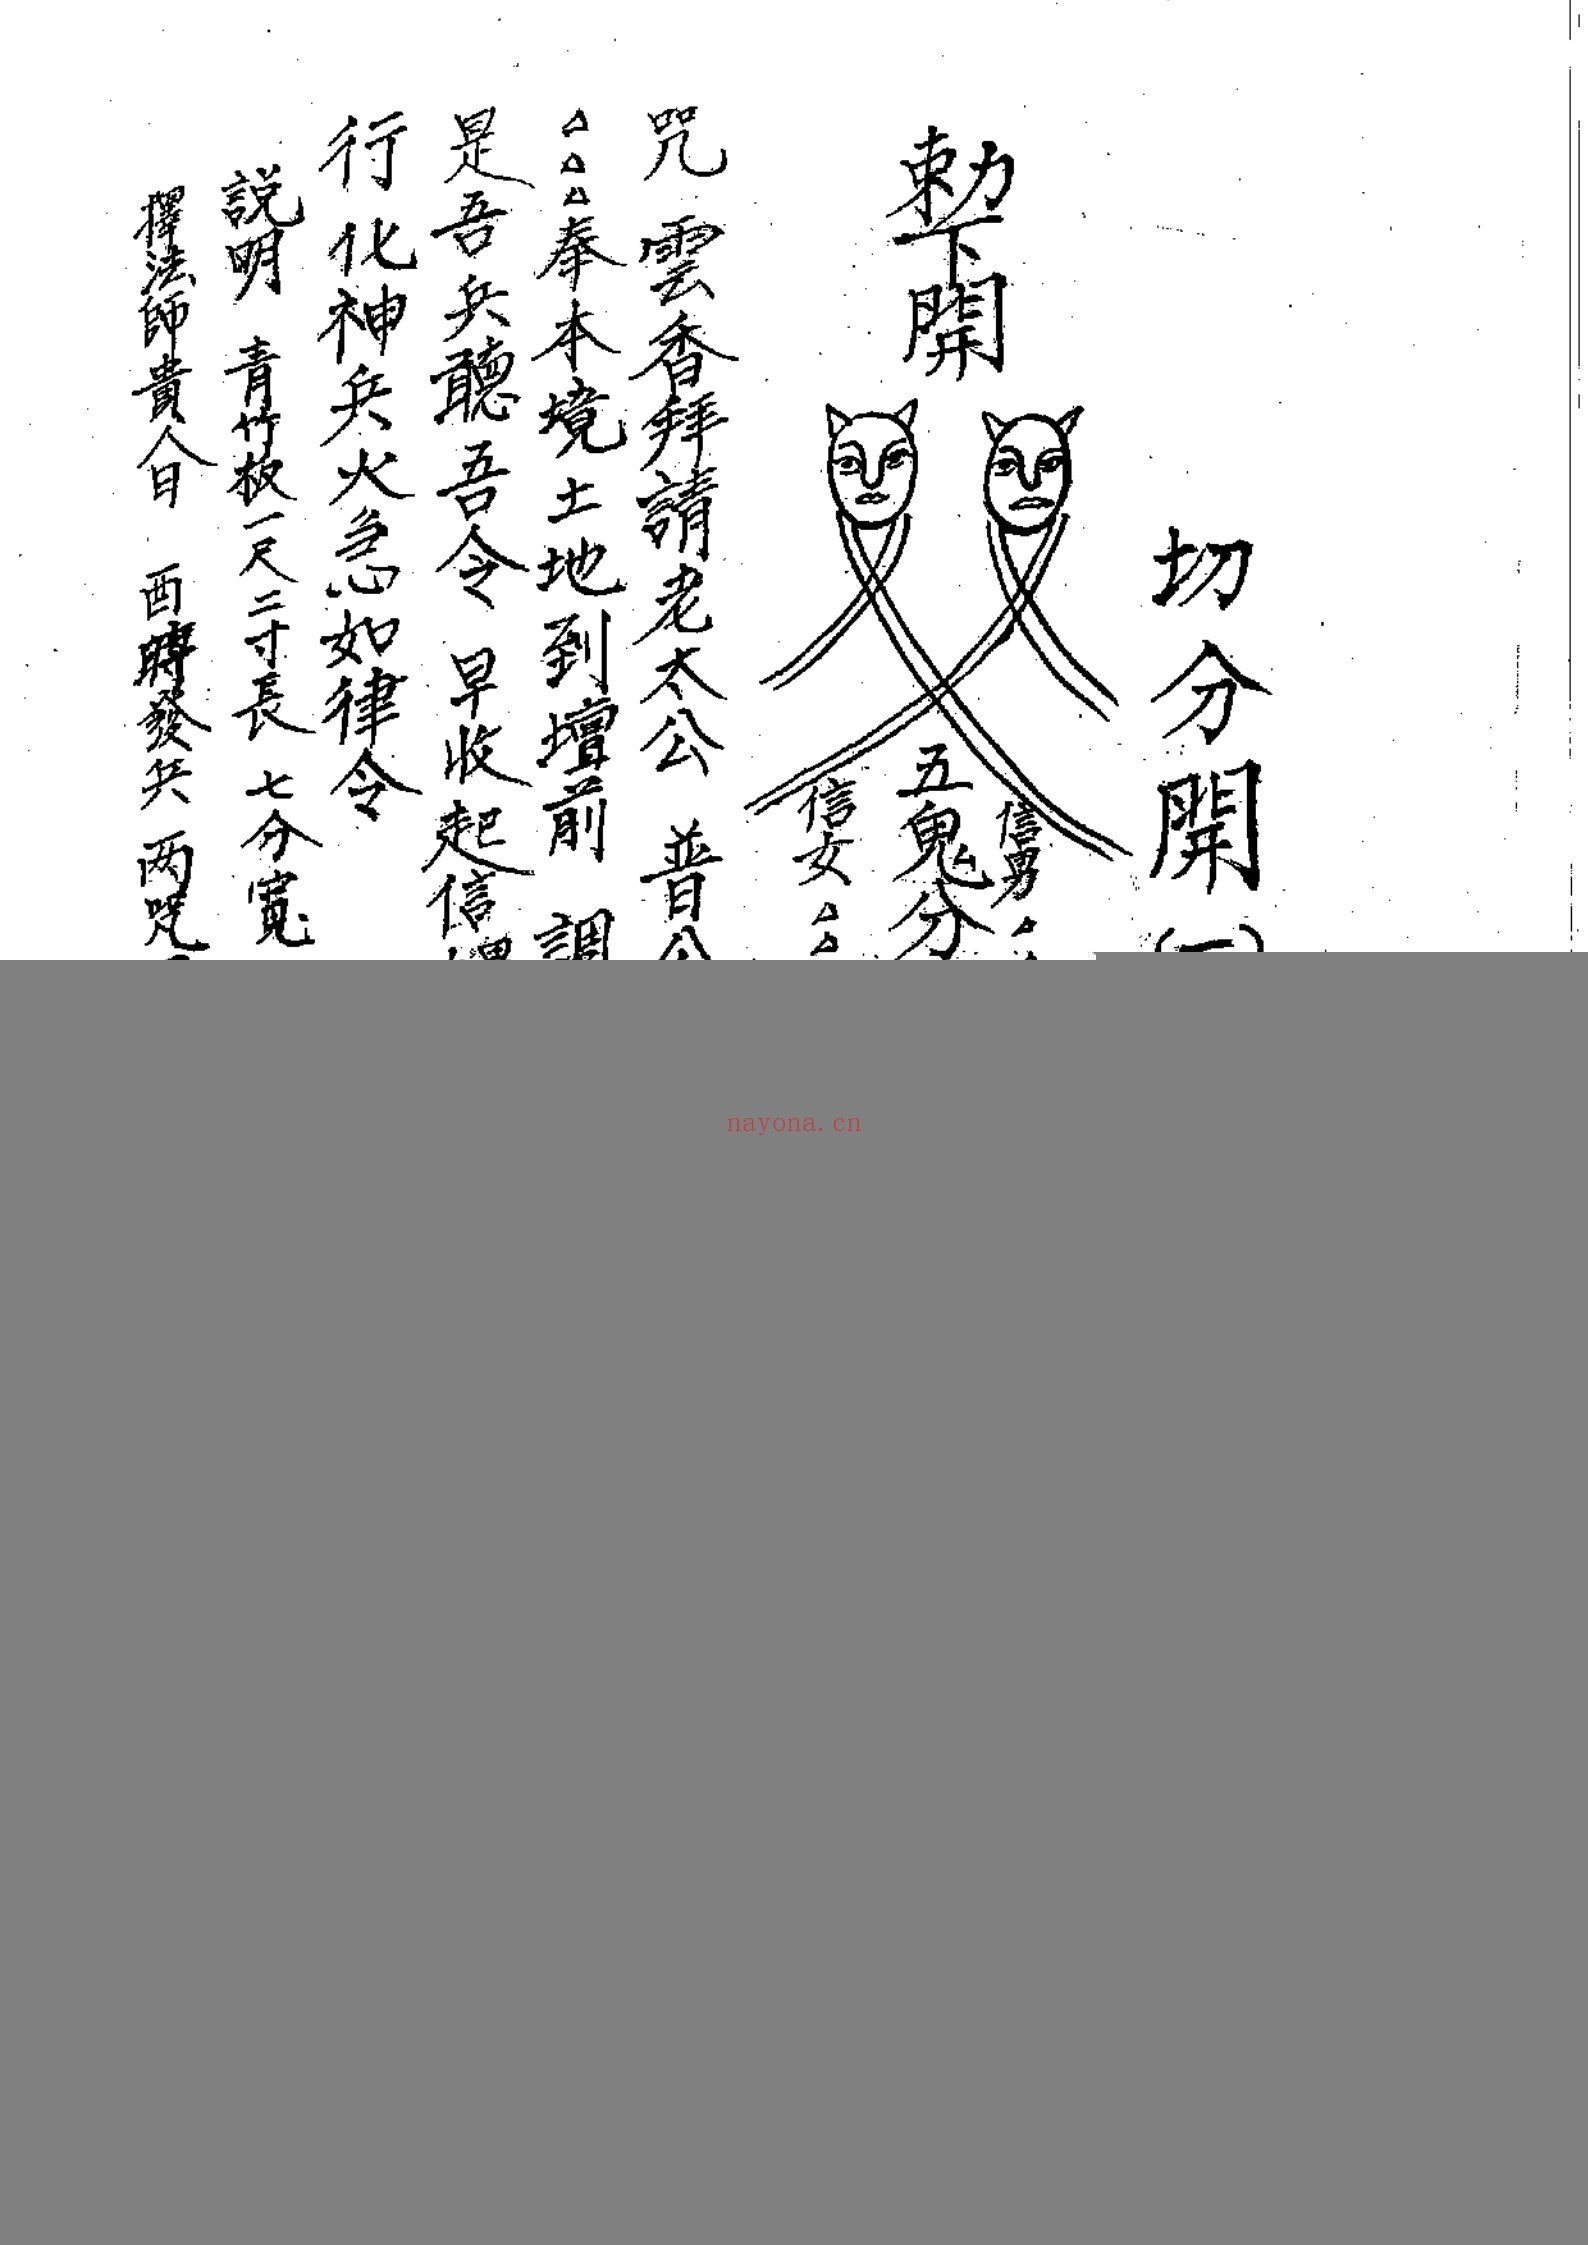 切分開(一)
勅下開
五鬼分
信男
信女
咒 雲香拜請老太公 普公
△△△奉本境土地到壇前 調
是吾兵聽吾令 早收起信
行化神兵火急如律令
説明 青竹板一尺二寸長 七分寬
擇法師貴人日 酉時發兵 两咒
nayona.cn